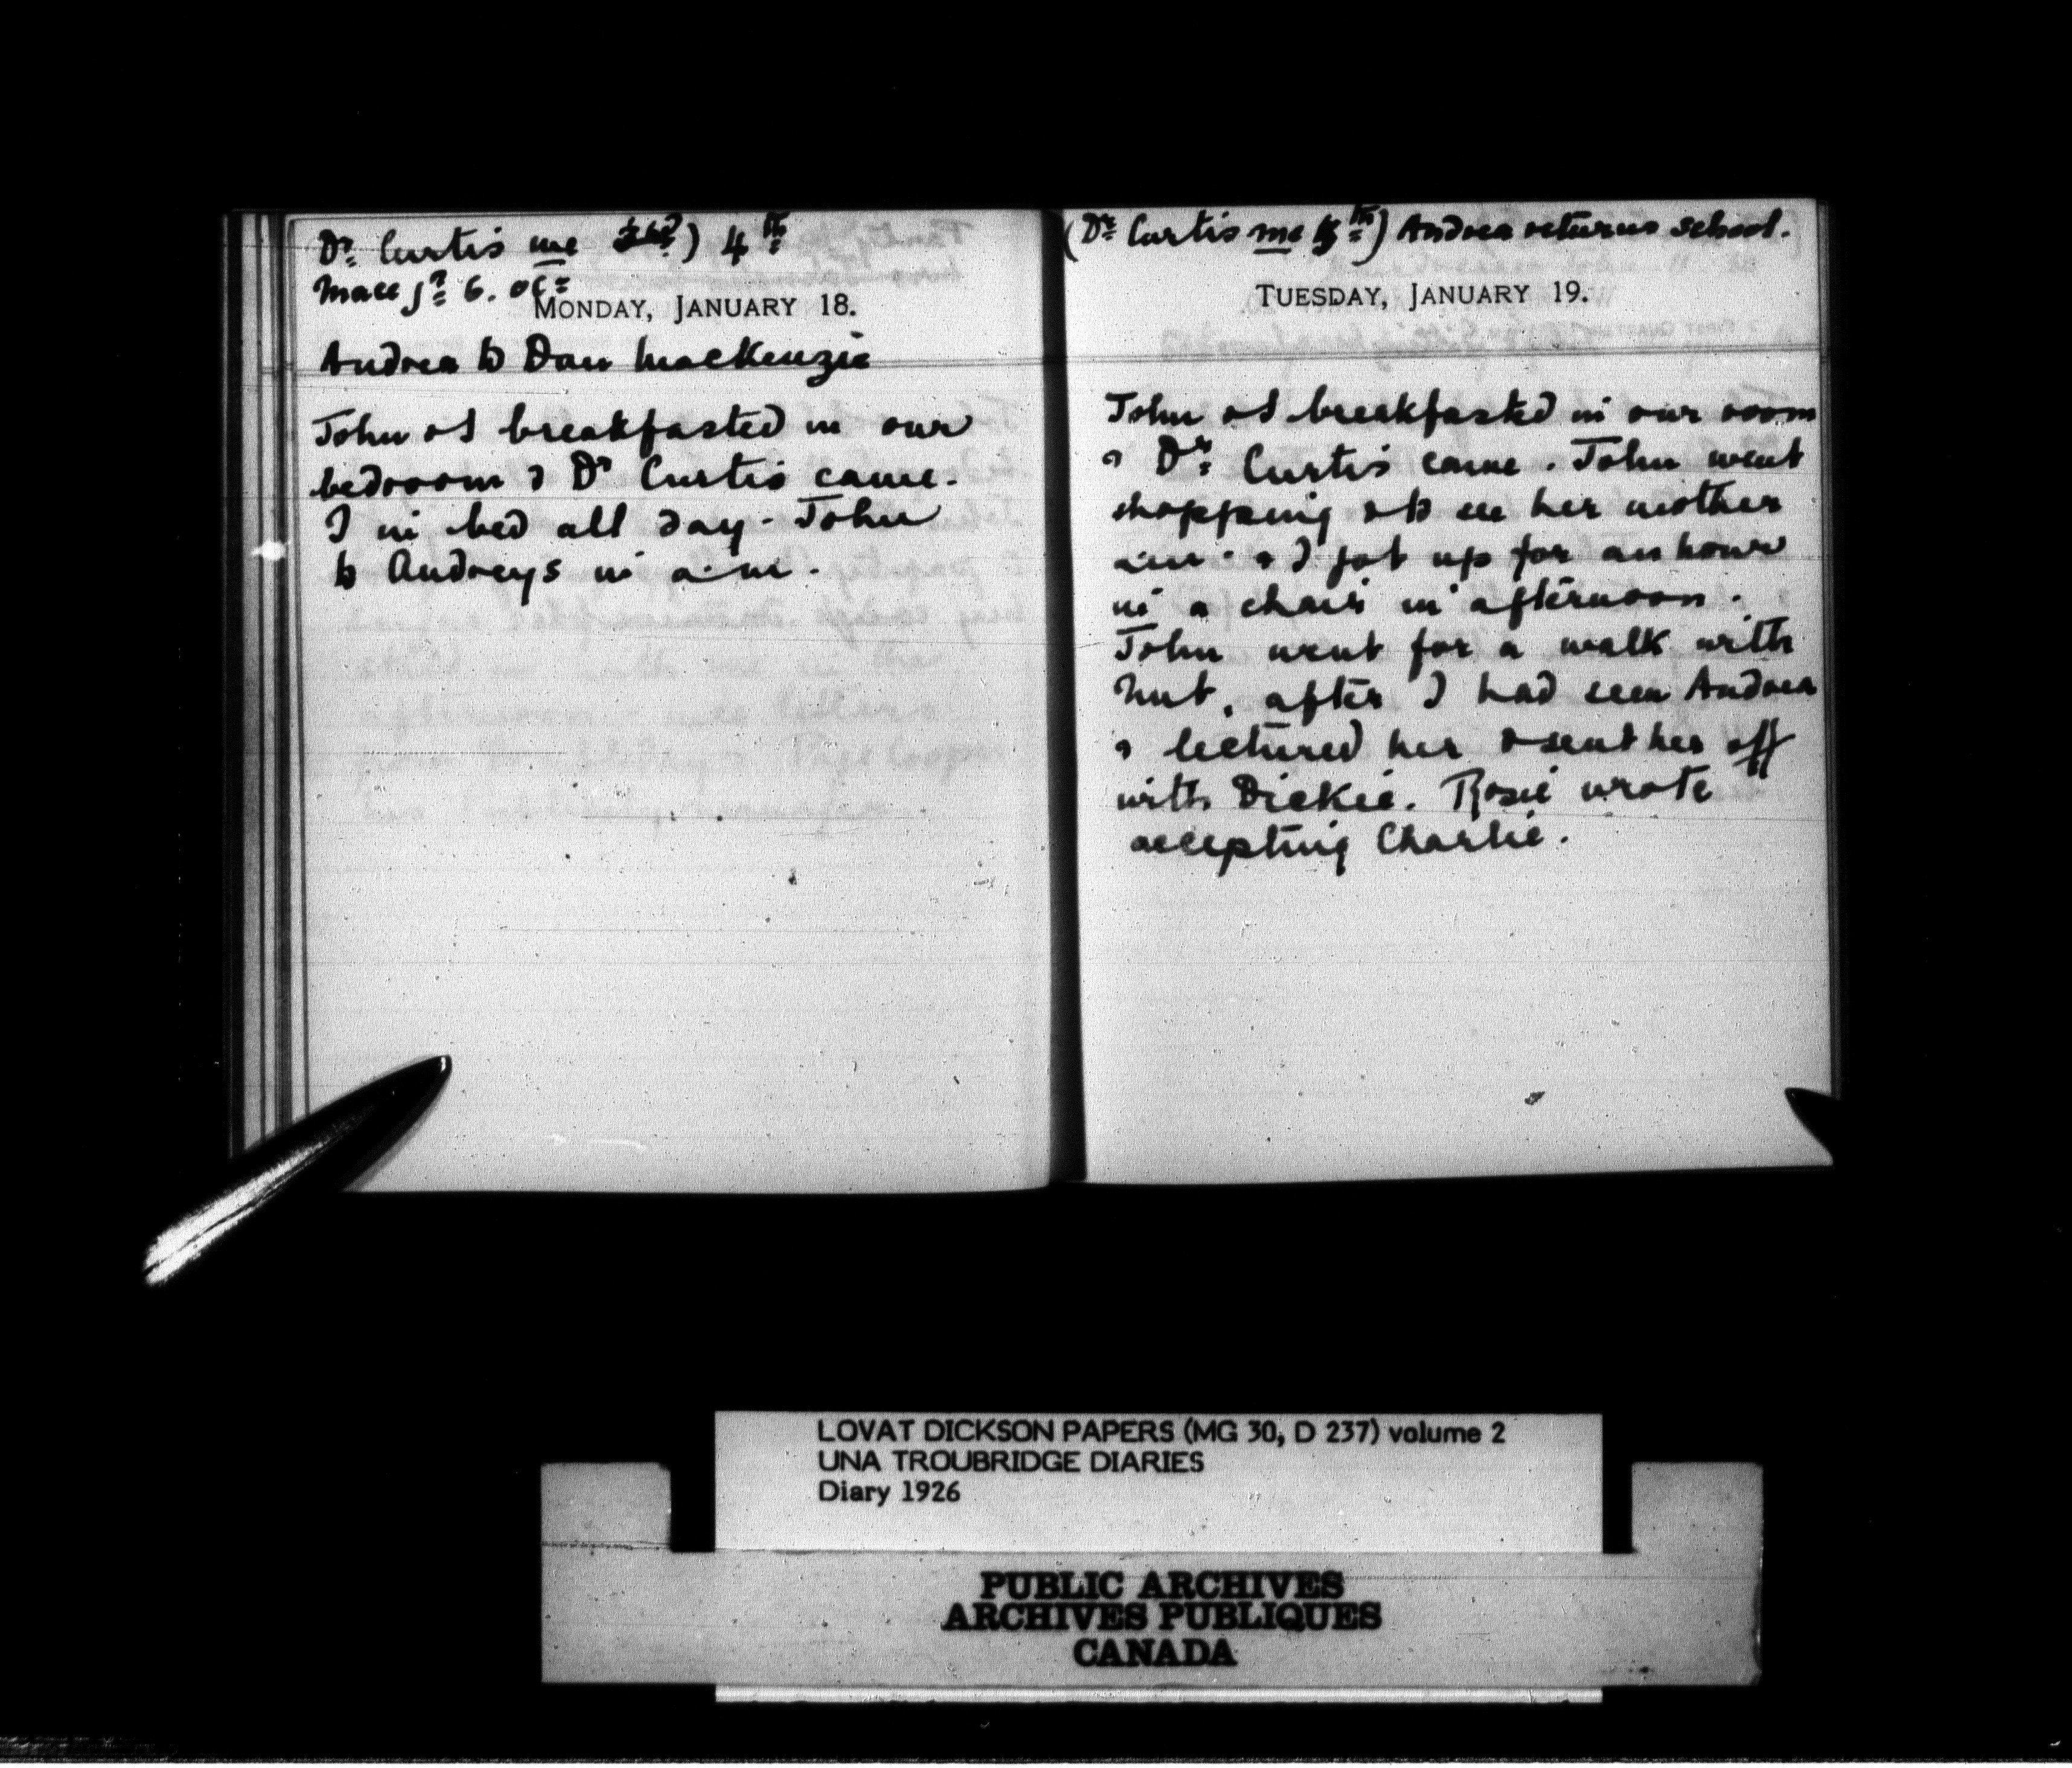 Dr Curtis me 3rd) 4th
Mace Jr 6. oc
MONDAY, JANUARY 18.
Andrea to Dan Mackenzie
John & I breakfasted in our
bedroom & Dr Curtis came.
I in bed all day - John
to Audreys in a.m.
(Dr Curtis me 5th) Andrea returns school.
TUESDAY, JANUARY 19.
John & I breakfasted in our room
& Dr Curtis came. John went
shopping & to see her mother
& I got up for an hour
in a chair in afternoon.
John went for a walk with
Nut, after I had seen Andrea
& lectured her & sent her off
with Dickie. Rosie wrote
accepting Charlie.
LOVAT DICKSON PAPERS (MG 30, D 237) volume 2
UNA TROUBRIDGE DIARIES
Diary 1926
PUBLIC ARCHIVES
ARCHIVES PUBLIQUES
CANADA